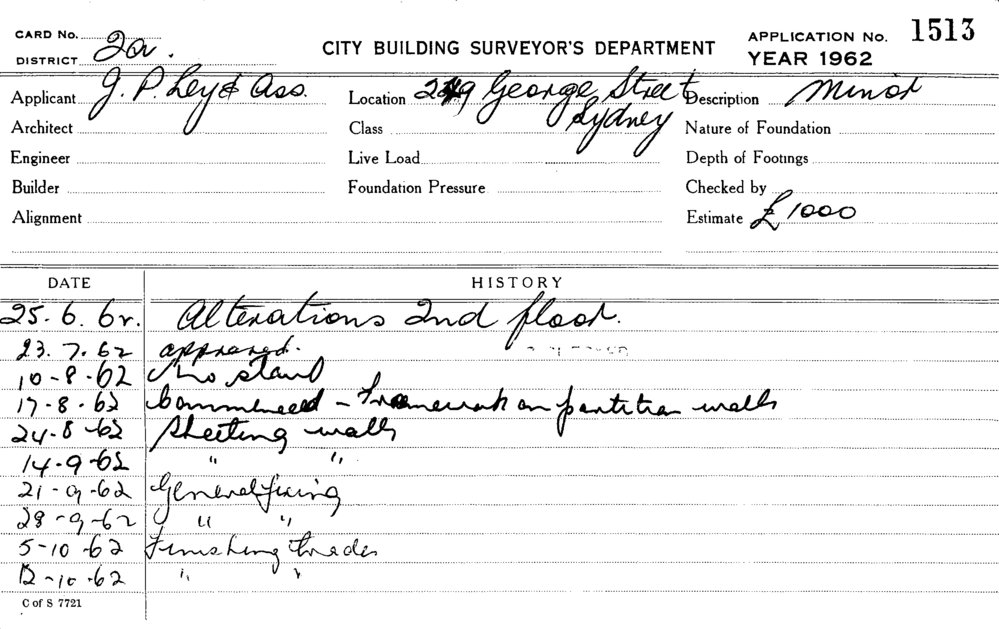 CARD No. 2a. CITY BUILDING SURVEYOR'S DEPARTMENT APPLICATION No. 1513
DISTRICT YEAR 1962
Applicant J. P. Ley & Ass. Location 249 George Street Sydney Description Minor
Architect Class Nature of Foundation
Engineer Live Load Depth of Footings
Builder Foundation Pressure Checked by
Alignment Estimate £1000
DATE HISTORY
25.6.62. Alterations 2nd floor.
23.7.62 approved.
10-8-62 No start
17-8-62 Commenced - Framework on partition walls
24-8-62 Sheeting walls
14-9-62 " "
21-9-62 General fixing
28-9-62 " "
5-10-62 Finishing trades
12-10-62 " "
C of S 7721